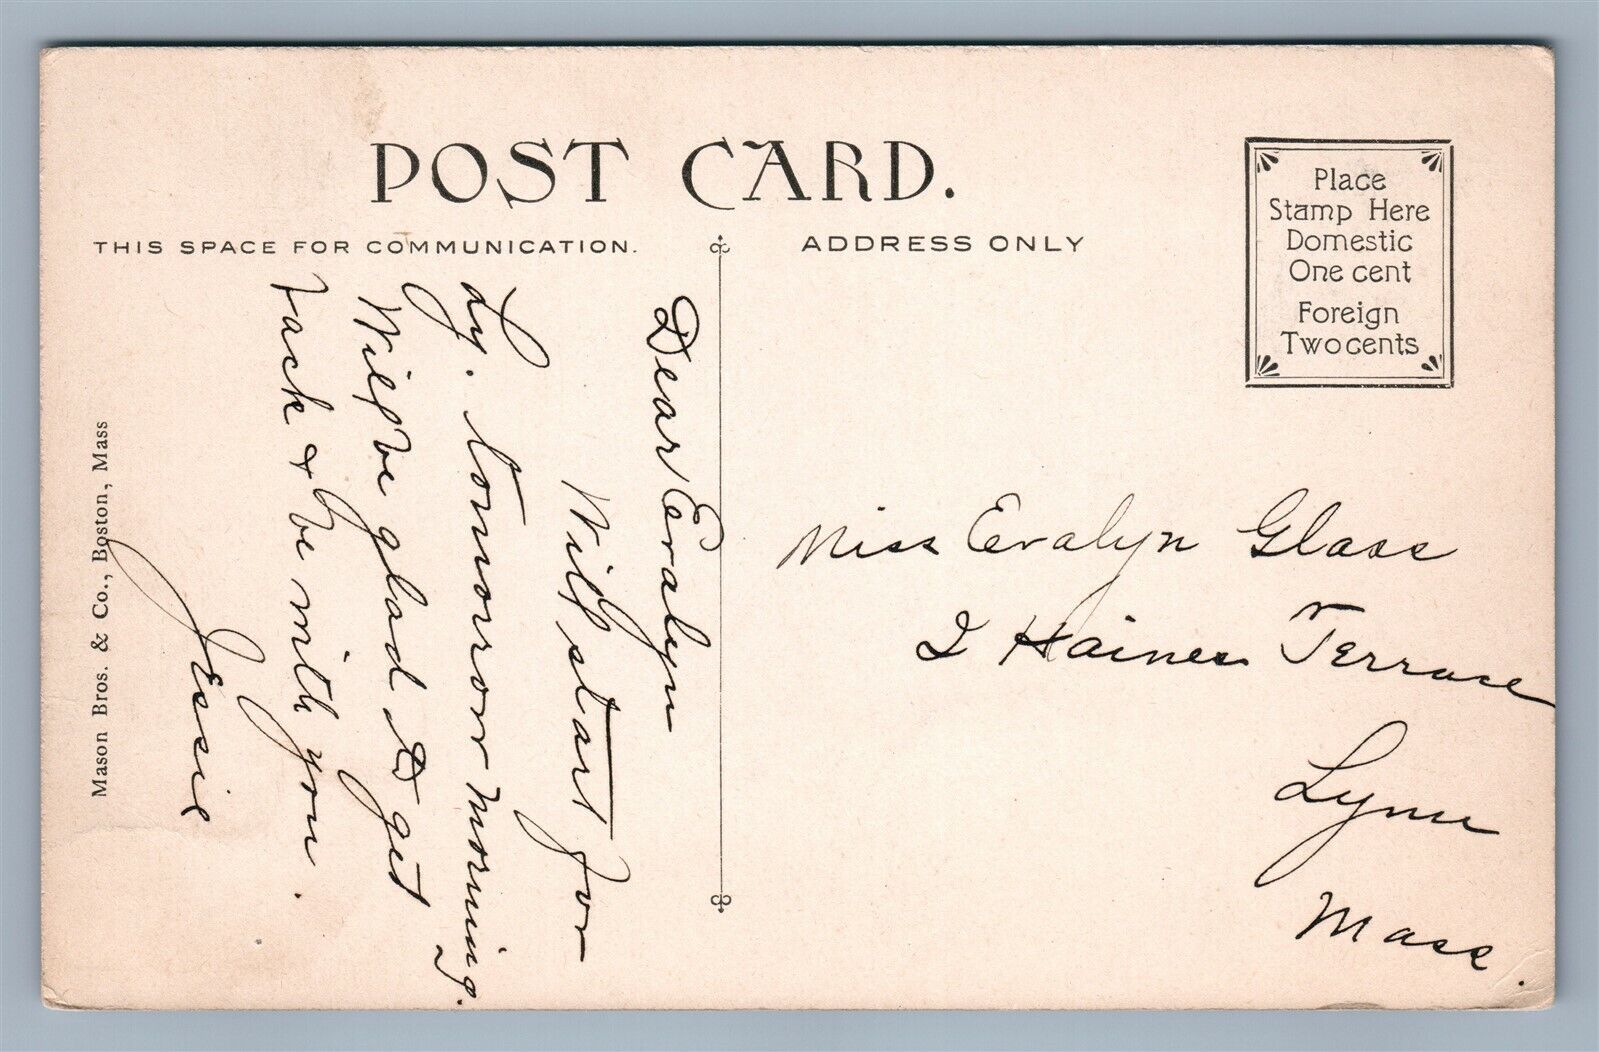 POST CARD.
THIS SPACE FOR COMMUNICATION.
ADDRESS ONLY
Place
Stamp Here
Domestic
One cent
Foreign
Two cents
Dear Evalyn
Will start for
Ly. tomorrow morning.
Will be glad to get
back & be with you.
Jessie
Miss Evalyn Glass
2 Haines Terrace
Lynn
Mass.
Mason Bros. & Co., Boston, Mass